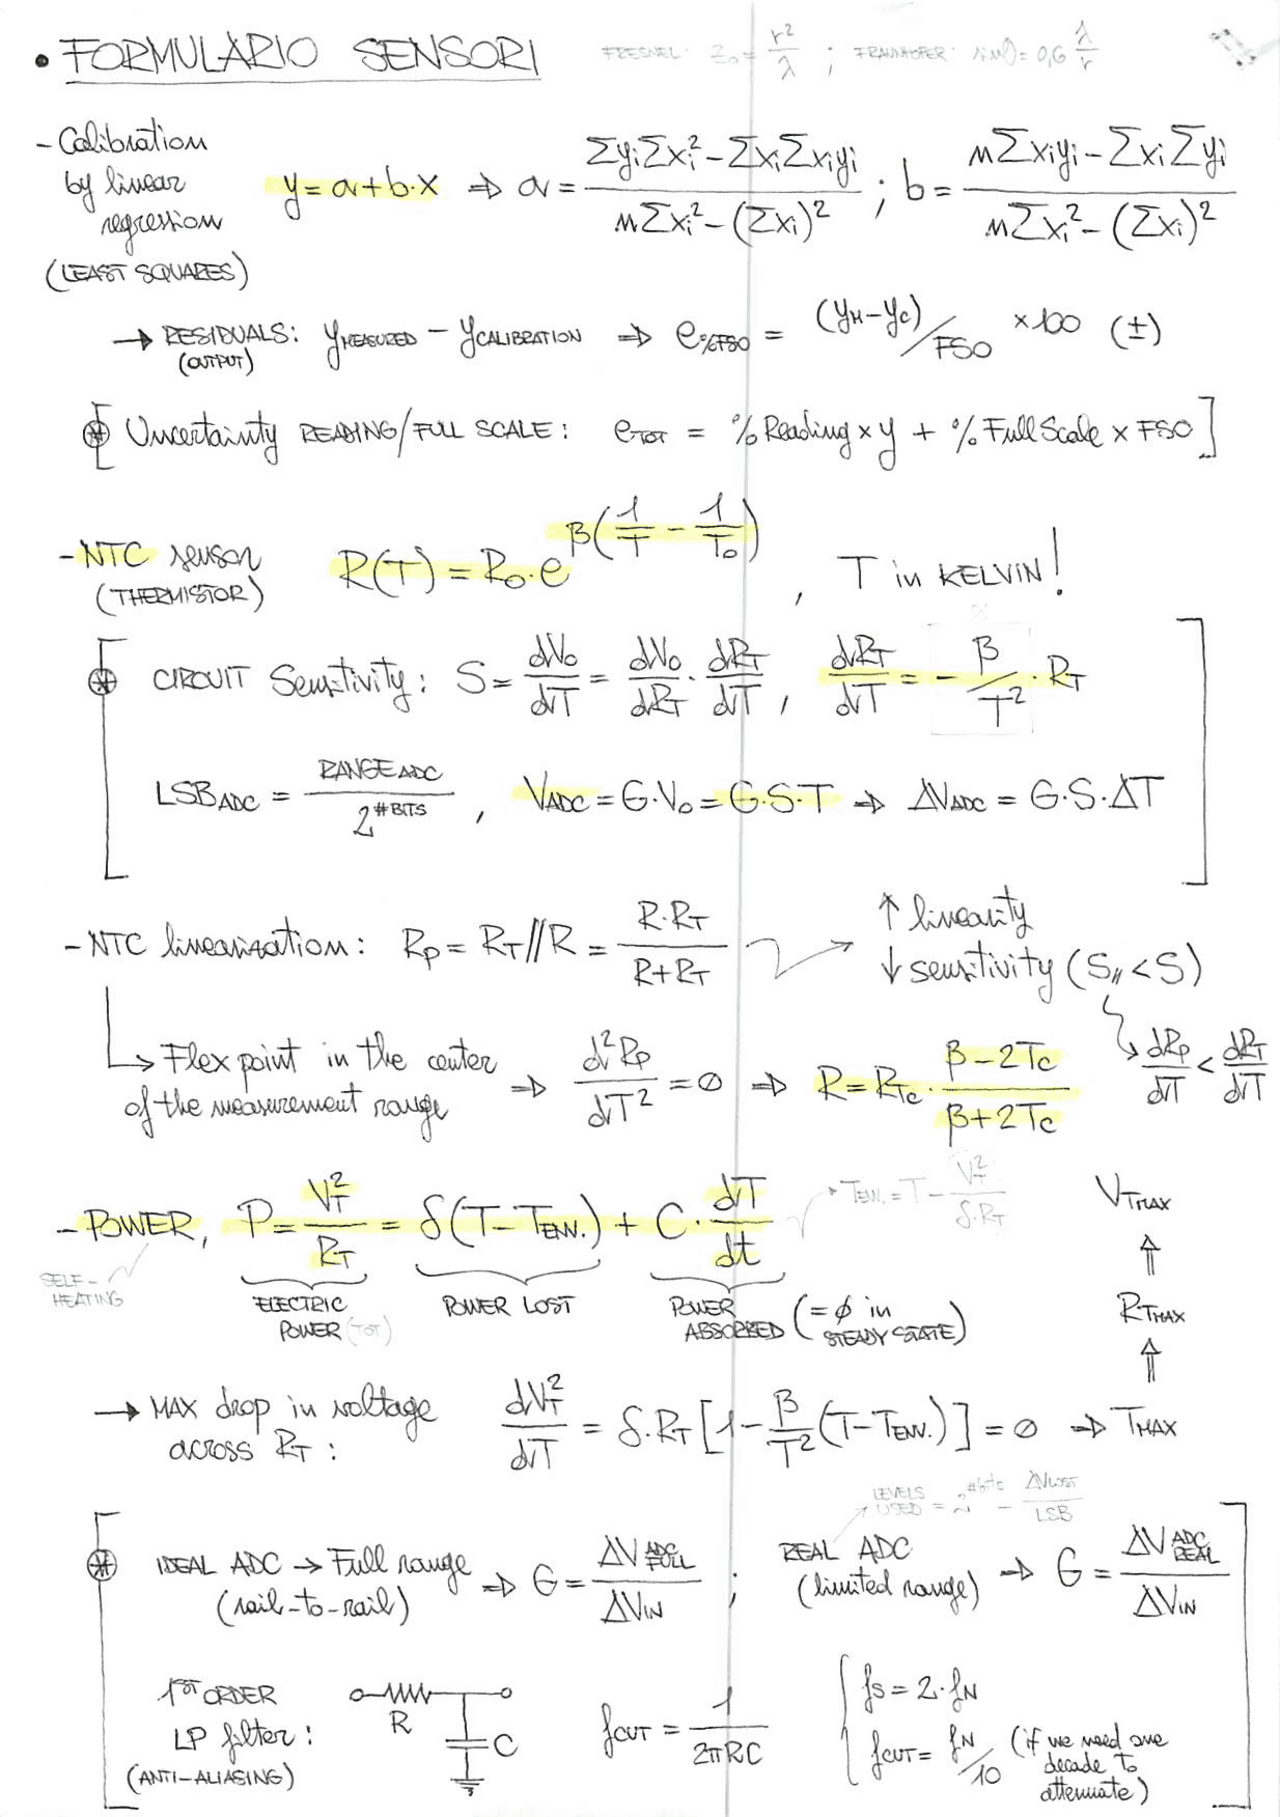 • FORMULARIO SENSORI
FRESNEL: z₀ = r²/λ ; FRAUNHOFER: sinθ = 0,6 λ/r
- Calibration by linear regression (LEAST SQUARES)
y = a + b·x ⇒ a = (Σyᵢ Σxᵢ² - Σxᵢ Σxᵢyᵢ) / (nΣxᵢ² - (Σxᵢ)²) ; b = (nΣxᵢyᵢ - Σxᵢ Σyᵢ) / (nΣxᵢ² - (Σxᵢ)²)
→ RESIDUALS: y_MEASURED - y_CALIBRATION ⇒ e_%FSO = (y_M - y_C)/FSO × 100 (±)
(OUTPUT)
[ ⊛ Uncertainty READING/FULL SCALE: e_TOT = % Reading × y + % Full Scale × FSO ]
- NTC sensor (THERMISTOR)
R(T) = R₀·e^β(1/T - 1/T₀) , T in KELVIN!
⊛ CIRCUIT Sensitivity: S = dV₀/dT = dV₀/dR_T · dR_T/dT , dR_T/dT = -β/T² · R_T
α
LSB_ADC = RANGE_ADC / 2^#BITS , V_ADC = G·V₀ = G·S·T ⇒ ΔV_ADC = G·S·ΔT
- NTC linearisation: R_P = R_T // R = R·R_T / (R+R_T)
↑ linearity
↓ sensitivity (S_// < S)
dR_P/dT < dR_T/dT
↳ Flex point in the center of the measurement range ⇒ d²R_P/dT² = 0 ⇒ R = R_Tc · (β - 2Tc)/(β + 2Tc)
- POWER, P = V_T²/R_T = δ(T - T_ENV.) + C · dT/dt
T_ENV. = T - V_T²/(δ·R_T)
SELF-HEATING
ELECTRIC POWER (TOT)
POWER LOST
POWER ABSORBED (= 0 in STEADY STATE)
V_TMAX
⇑
R_TMAX
⇑
→ MAX drop in voltage across R_T: dV_T²/dT = δ·R_T [1 - β/T² (T - T_ENV.)] = 0 ⇒ T_MAX
LEVELS USED = 2^#bits - ΔV_LOST/LSB
⊛ IDEAL ADC → Full range (rail-to-rail) ⇒ G = ΔV_ADC FULL / ΔV_IN ; REAL ADC (limited range) ⇒ G = ΔV_ADC REAL / ΔV_IN
1ST ORDER LP filter: (ANTI-ALIASING)
R
C
f_CUT = 1/(2πRC)
f_S = 2·f_N
f_CUT = f_N/10 (if we need one decade to attenuate)